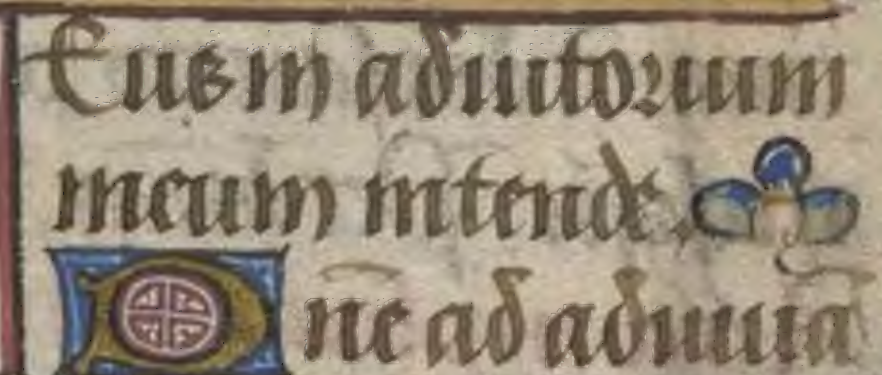 Eus in adiutorium
meum intende.
Dne ad adiuuā